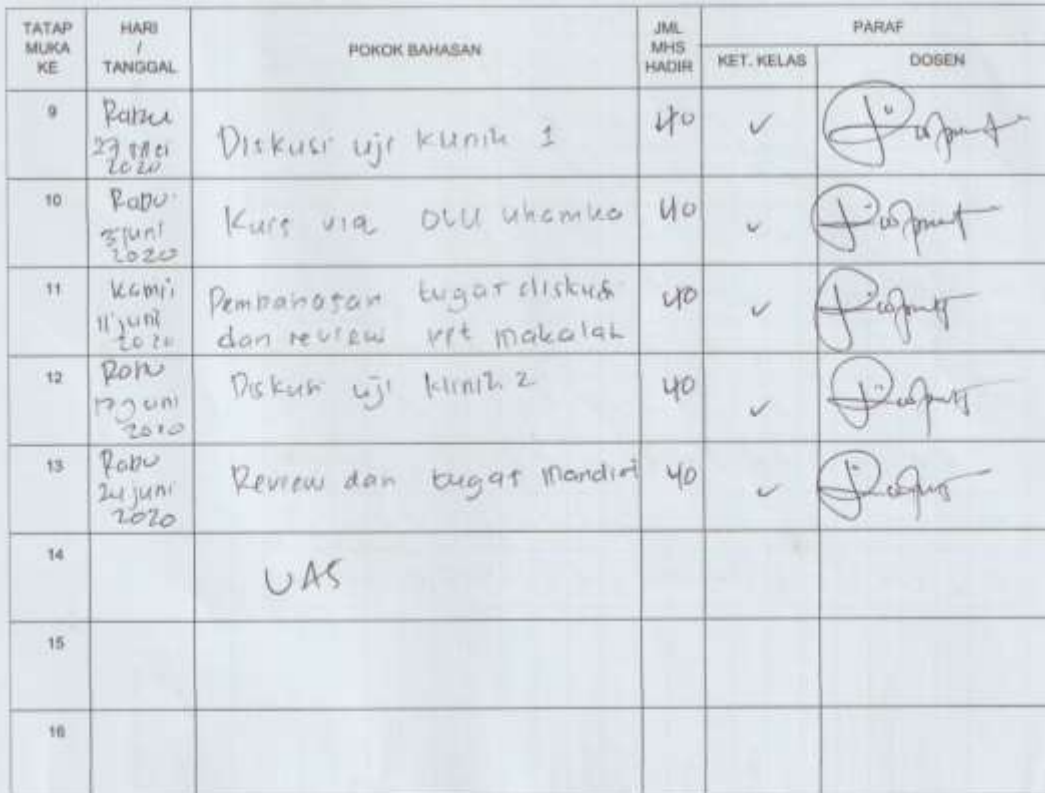 TATAP MUKA KE
HARI / TANGGAL
POKOK BAHASAN
JML MHS HADIR
PARAF
KET. KELAS
DOSEN
9
Rabu
27 Mei
2020
Diskusi uji klinik 1
40
✓
10
Rabu
3 Juni
2020
Kuis via OLU Uhamka
40
✓
11
Kamis
11 juni
2020
Pembahasan tugas diskusi
dan review ppt makalah
40
✓
12
Rabu
17 juni
2020
Diskusi uji klinik 2
40
✓
13
Rabu
24 juni
2020
Review dan tugas Mandiri
40
✓
14
UAS
15
16